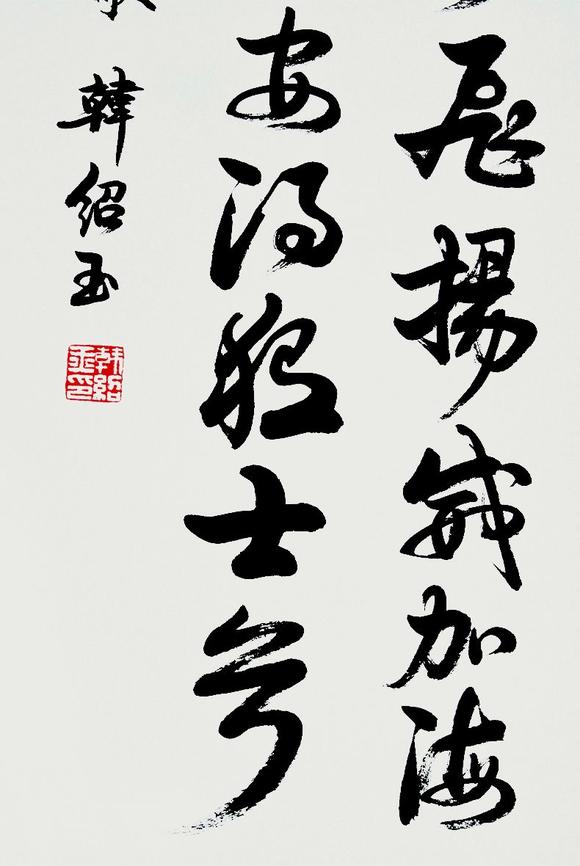 飛揚威加海
安得猛士兮
韓紹玉
韓紹玉印